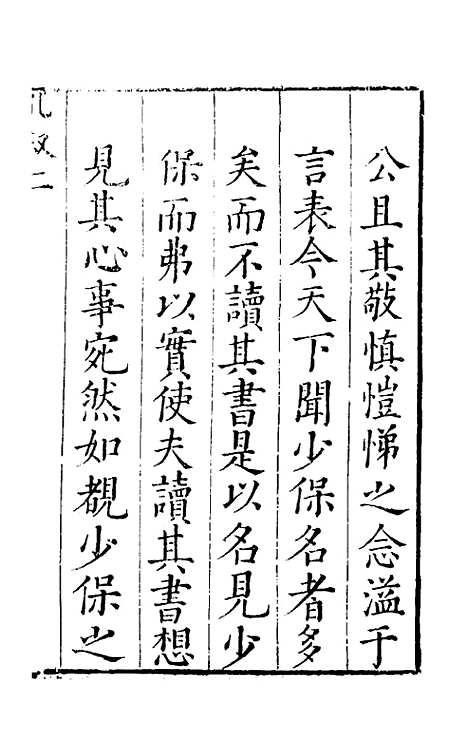 公且其敬慎愷悌之念溢于
言表今天下聞少保名者多
矣而不讀其書是以名見少
保而弗以實使夫讀其書想
見其心事宛然如覩少保之
叙二